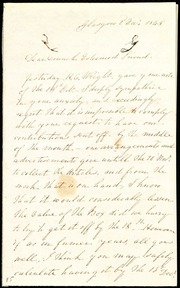 Glasgow 2 Dec. 1848
Dear & Esteemed Friend
Yesterday H. C. Wright gave your note
of the 14 Ult. I deeply sympathise
in your anxiety, and exceedingly
regret that it is impossible to comply
with your request to have our
contributions sent off by the middle
of the month — our arrangements and
advertisement give until the 21 Nov.
to collect the Articles, and from the
work that is on hand, I know
that it would considerably lessen
the value of the Box did we hurry
try to get it off by the 18th. However
if as in former years all goes
well, I think you may safely
calculate having it by the 18 Dec.